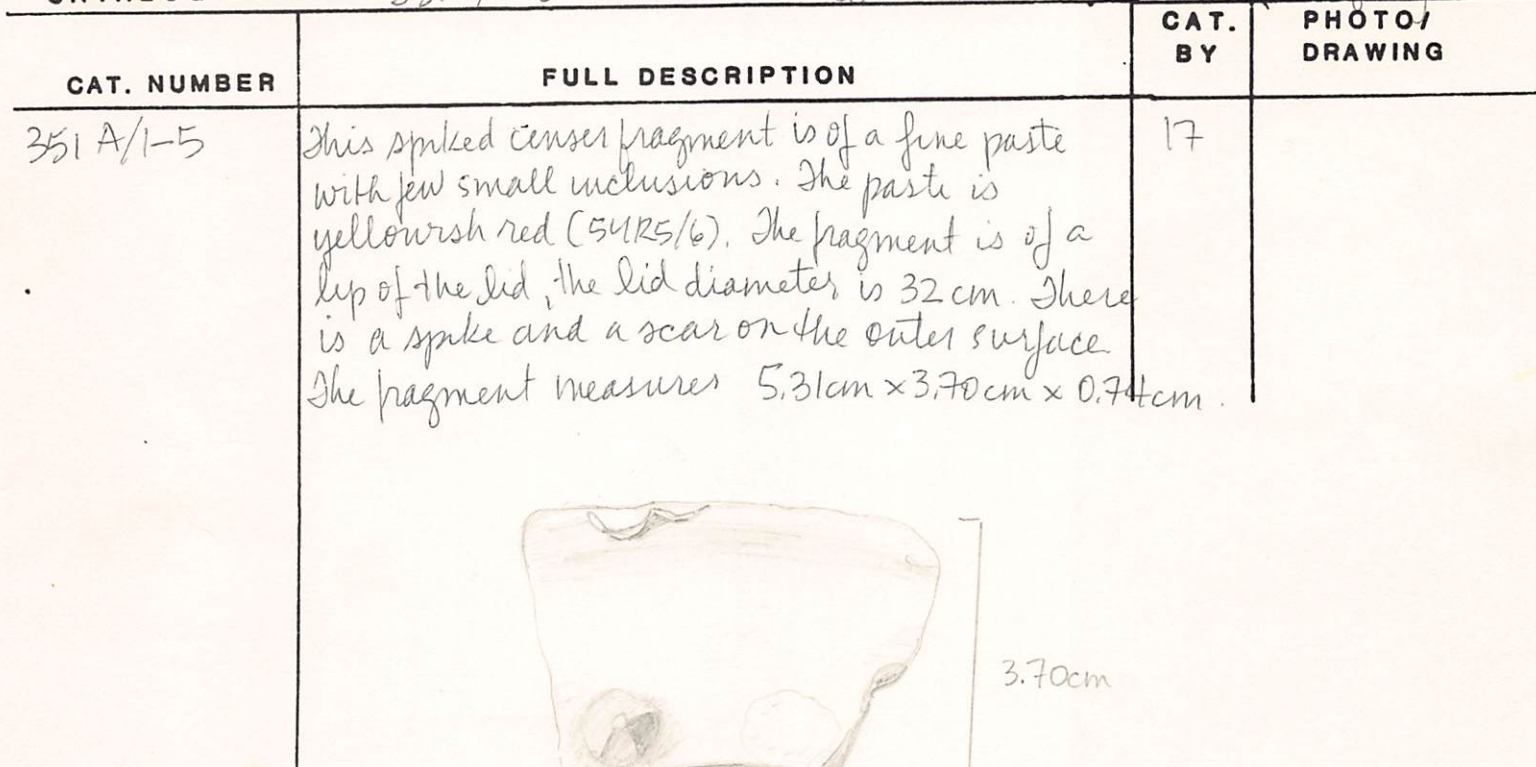 CAT. NUMBER
FULL DESCRIPTION
CAT.
BY
PHOTO/
DRAWING
351 A/1-5
This spiked censer fragment is of a fine paste
with few small inclusions. The paste is
yellowish red (5YR5/6). The fragment is of a
lip of the lid, the lid diameter is 32 cm. There
is a spike and a scar on the outer surface.
The fragment measures 5.31cm x 3.70cm x 0.74cm.
17
3.70cm